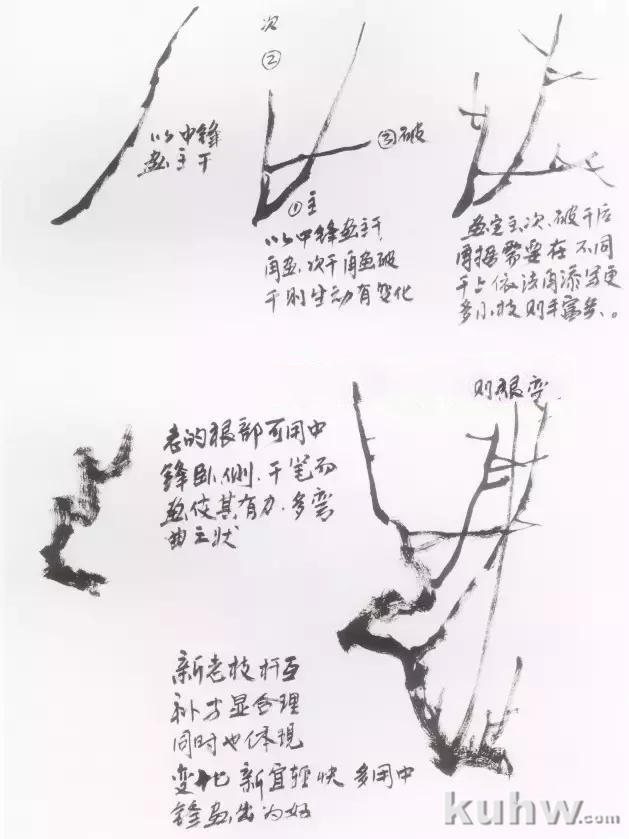 以中锋
画主干
次
②
③破
①主
以中锋画主干
再画、次干再画破
干则生动有变化
画定主、次、破干后
再据需要在不同
干上依法再添写更
多小枝则丰富矣、。
则根变
老的根部可用中
锋卧、侧、干笔而
画使其有力、多弯
曲之状
新老枝杆互
补才显合理
同时也体现
变化 新宜轻快 多用中
锋画出为好
kuhw.com